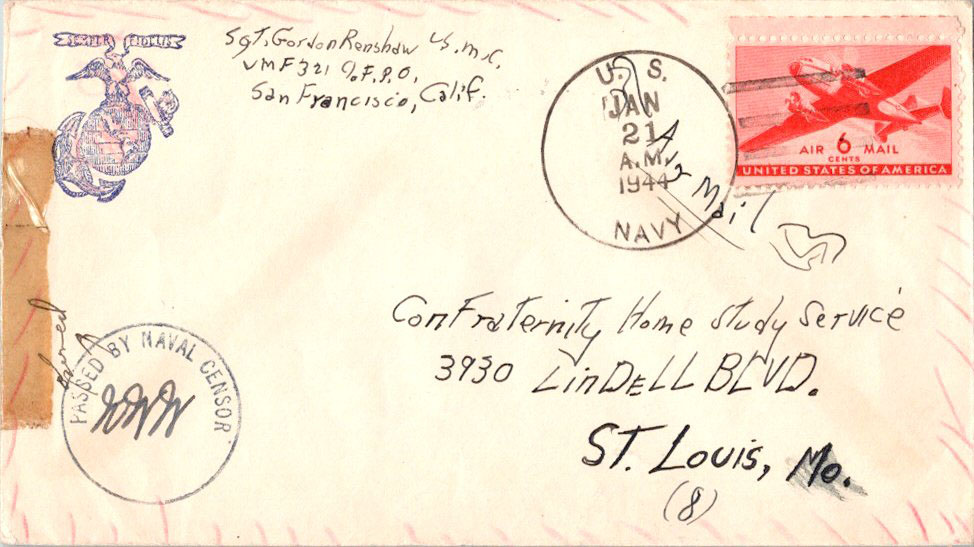 SEMPER FIDELIS
Sgt. Gordon Renshaw U.S.M.C.
VMF 321 % F.P.O.
San Francisco, Calif.
U. S.
JAN
21
A.M.
1944
NAVY
AIR 6 MAIL
CENTS
UNITED STATES OF AMERICA
Air Mail
ConFraternity Home Study Service
3930 LinDELL BLVD.
ST. Louis, Mo.
(8)
PASSED BY NAVAL CENSOR